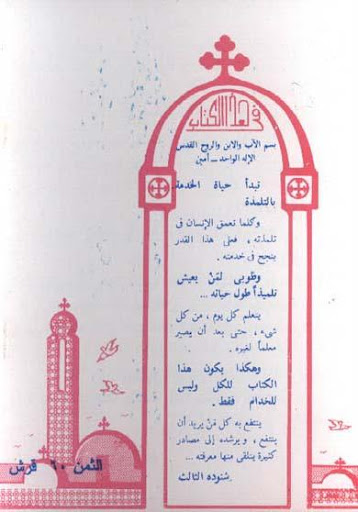 في هذا الكتاب
بسم الآب والابن والروح القدس
الإله الواحد ــ آمين
تبدأ حياة الخدمة
بالتلمذة
وكلما تعمق الإنسان فى
تلمذته ، فعلى هذا القدر
ينجح فى خدمته .
وطوبى لمَنْ يعيش
تلميذاً طول حياته ...
يتعلم كل يوم ، من كل
شىء ، حتى بعد أن يصير
معلماً لغيره .
وهكذا يكون هذا
الكتاب للكل وليس
للخدام فقط .
ينتفع به كل مَنْ يريد أن
ينتفع ، ويرشده إلى مصادر
كثيرة يتلقى منها معرفته ...
شنوده الثالث
الثمن ٦٠ قرش